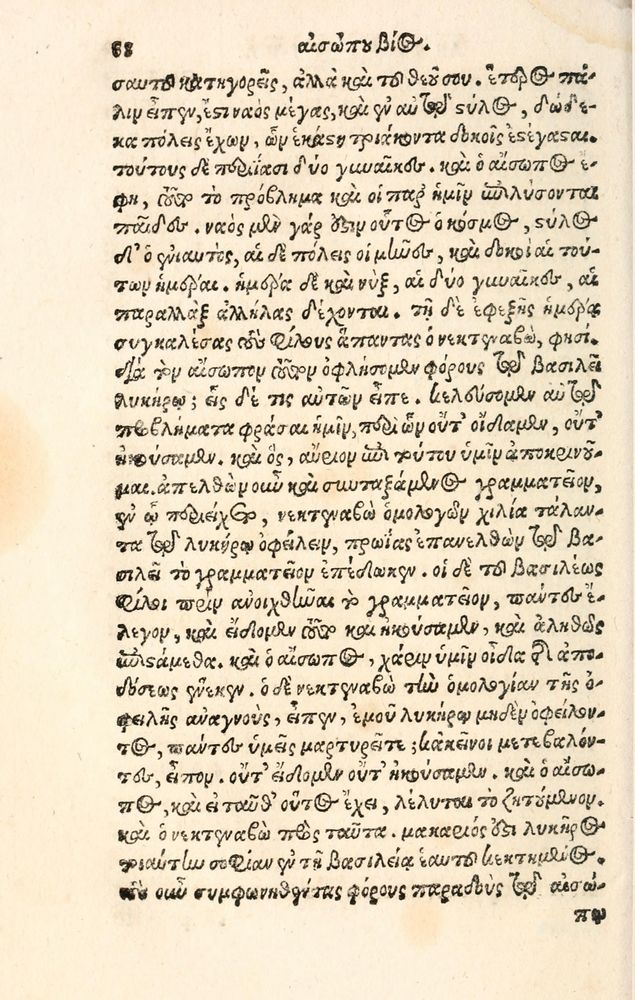 68 αἰσώπου βίος.
σαυτοῦ κατηγορεῖς, ἀλλὰ καὶ τοῦ θεοῦ σου. ἕτερος πά-
λιν εἶπεν, ἔστι ναὸς μέγας, καὶ ἐν αὐτῷ στύλος, δώδε-
κα πόλεις ἔχων, ὧν ἑκάστη τριάκοντα δοκοῖς ἐστέγασται.
τούτους δὲ περιΐασι δύο γυναῖκες. καὶ ὁ αἴσωπος ἔ-
φη, τοῦτο τὸ πρόβλημα καὶ οἱ παρ' ἡμῖν ἐπιλύσονται
παῖδες. ναὸς μὲν γάρ ἐστιν οὗτος ὁ κόσμος, στύλος
δ' ὁ ἐνιαυτὸς, αἱ δὲ πόλεις οἱ μῆνες, καὶ δοκοὶ αἱ τού-
των ἡμέραι. ἡμέρα δὲ καὶ νὺξ, αἱ δύο γυναῖκες, αἳ
παραλλὰξ ἀλλήλας δέχονται. τῇ δὲ ἐφεξῆς ἡμέρᾳ
συγκαλέσας τοὺς φίλους ἅπαντας ὁ νεκτεναβὼ, φησί.
διὰ τὸν αἴσωπον τοῦτον ὀφλήσομεν φόρους τῷ βασιλεῖ
λυκήρῳ; εἷς δέ τις αὐτῶν εἶπε. κελεύσομεν αὐτῷ
προβλήματα φράσαι ἡμῖν, περὶ ὧν οὔτ' οἴδαμεν, οὔτ'
ἠκούσαμεν. καὶ ὃς, αὔριον ἐπὶ τούτου ὑμῖν ἀποκρινοῦ-
μαι. ἀπελθὼν οὖν καὶ συνταξάμενος γραμματεῖον,
ἐν ᾧ περιείχετο, νεκτεναβὼ ὁμολογῶν χίλια τάλαν-
τα τῷ λυκήρῳ ὀφείλειν, πρωΐας ἐπανελθὼν τῷ βα-
σιλεῖ τὸ γραμματεῖον ἐπέδωκεν. οἱ δὲ τοῦ βασιλέως
φίλοι πρὶν ἀνοιχθῆναι τὸ γραμματεῖον, πάντες ἔ-
λεγον, καὶ εἴδομεν τοῦτο καὶ ἠκούσαμεν, καὶ ἀληθῶς
ἐπιστάμεθα. καὶ ὁ αἴσωπος, χάριν ὑμῖν οἶδα τῆς ἀπο-
δόσεως ἕνεκεν. ὁ δὲ νεκτεναβὼ τὴν ὁμολογίαν τῆς ὀ-
φειλῆς ἀναγνοὺς, εἶπεν, ἐμοῦ λυκήρῳ μηδὲν ὀφείλον-
τος, πάντες ὑμεῖς μαρτυρεῖτε; κἀκεῖνοι μεταβαλόν-
τες, εἶπον. οὔτ' εἴδομεν οὔτ' ἠκούσαμεν. καὶ ὁ αἴσω-
πος, καὶ εἰ ταῦθ' οὕτως ἔχει, λέλυται τὸ ζητούμενον.
καὶ ὁ νεκτεναβὼ πρὸς ταῦτα. μακάριός ἐστι λυκῆρος
τοιαύτην σοφίαν ἐν τῇ βασιλείᾳ ἑαυτοῦ κεκτημένος.
τοὺς οὖν συμφωνηθέντας φόρους παραδοὺς τῷ αἰσώ-
πῳ